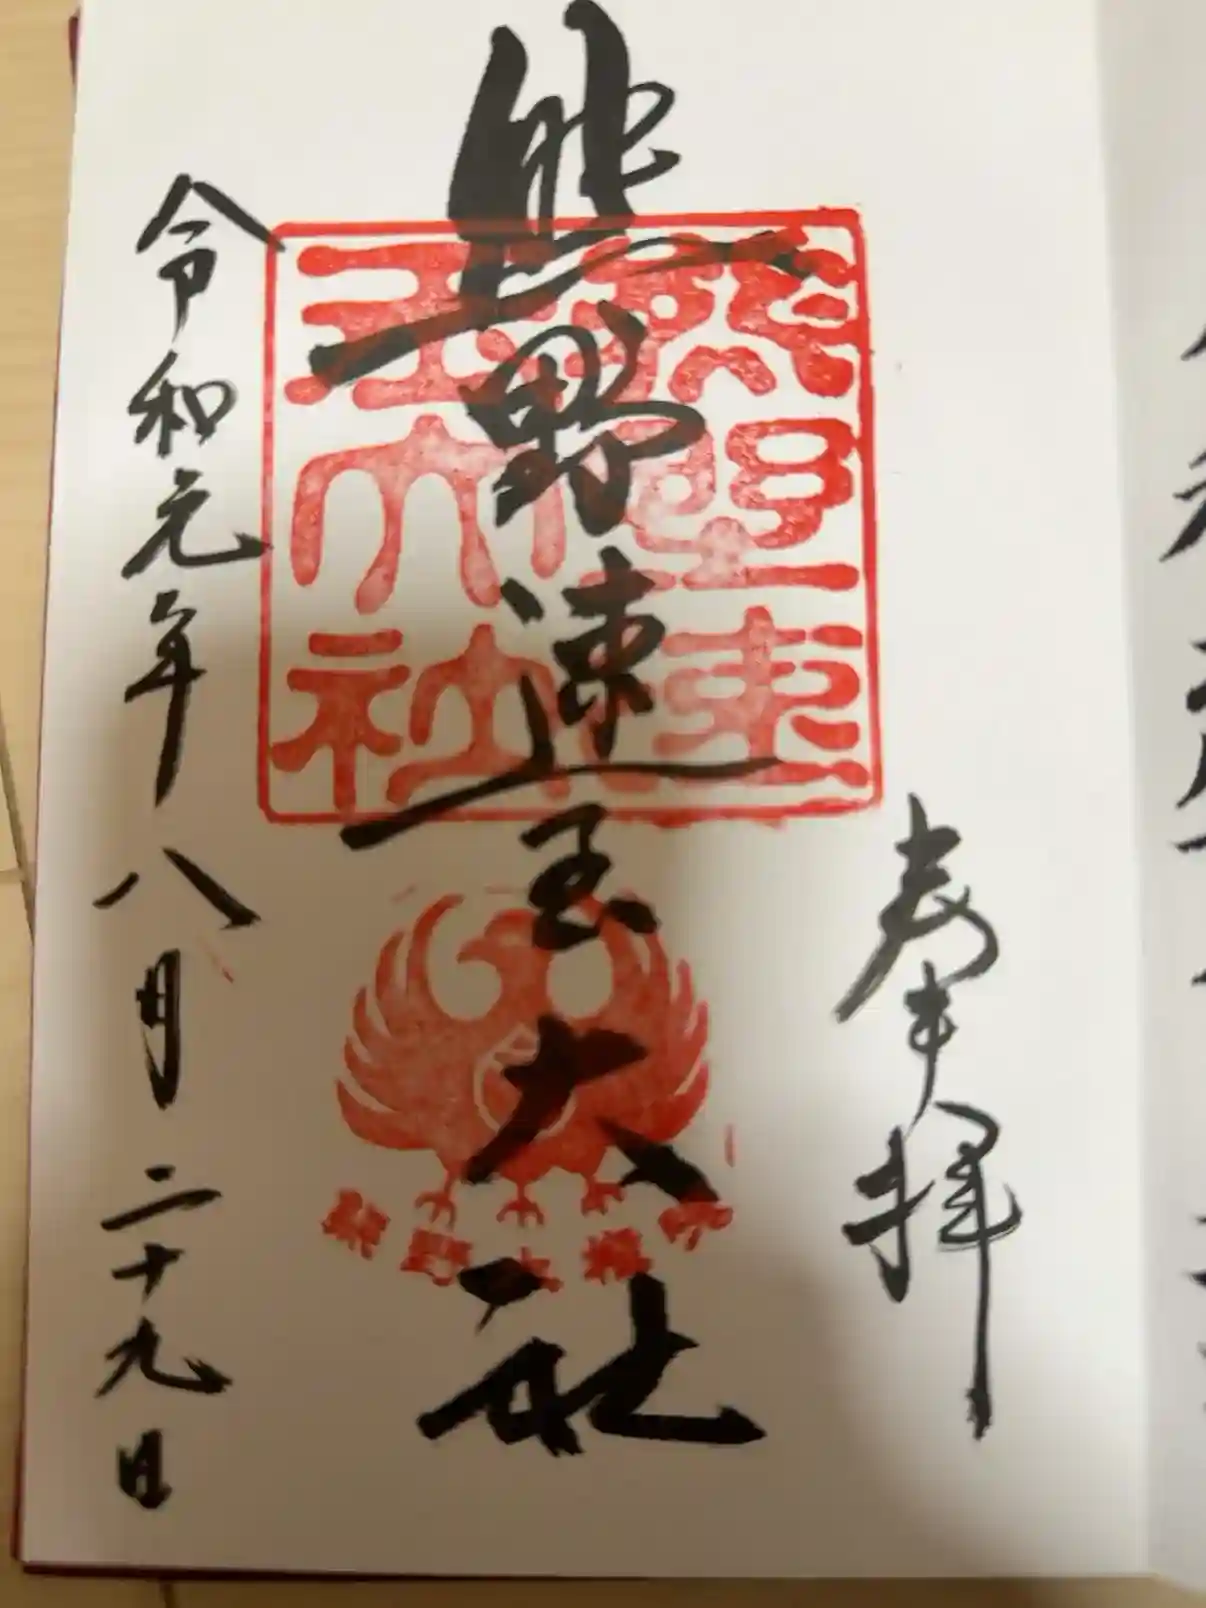 奉拝
熊野速玉大社
熊野速
玉大社
令和元年八月二十九日